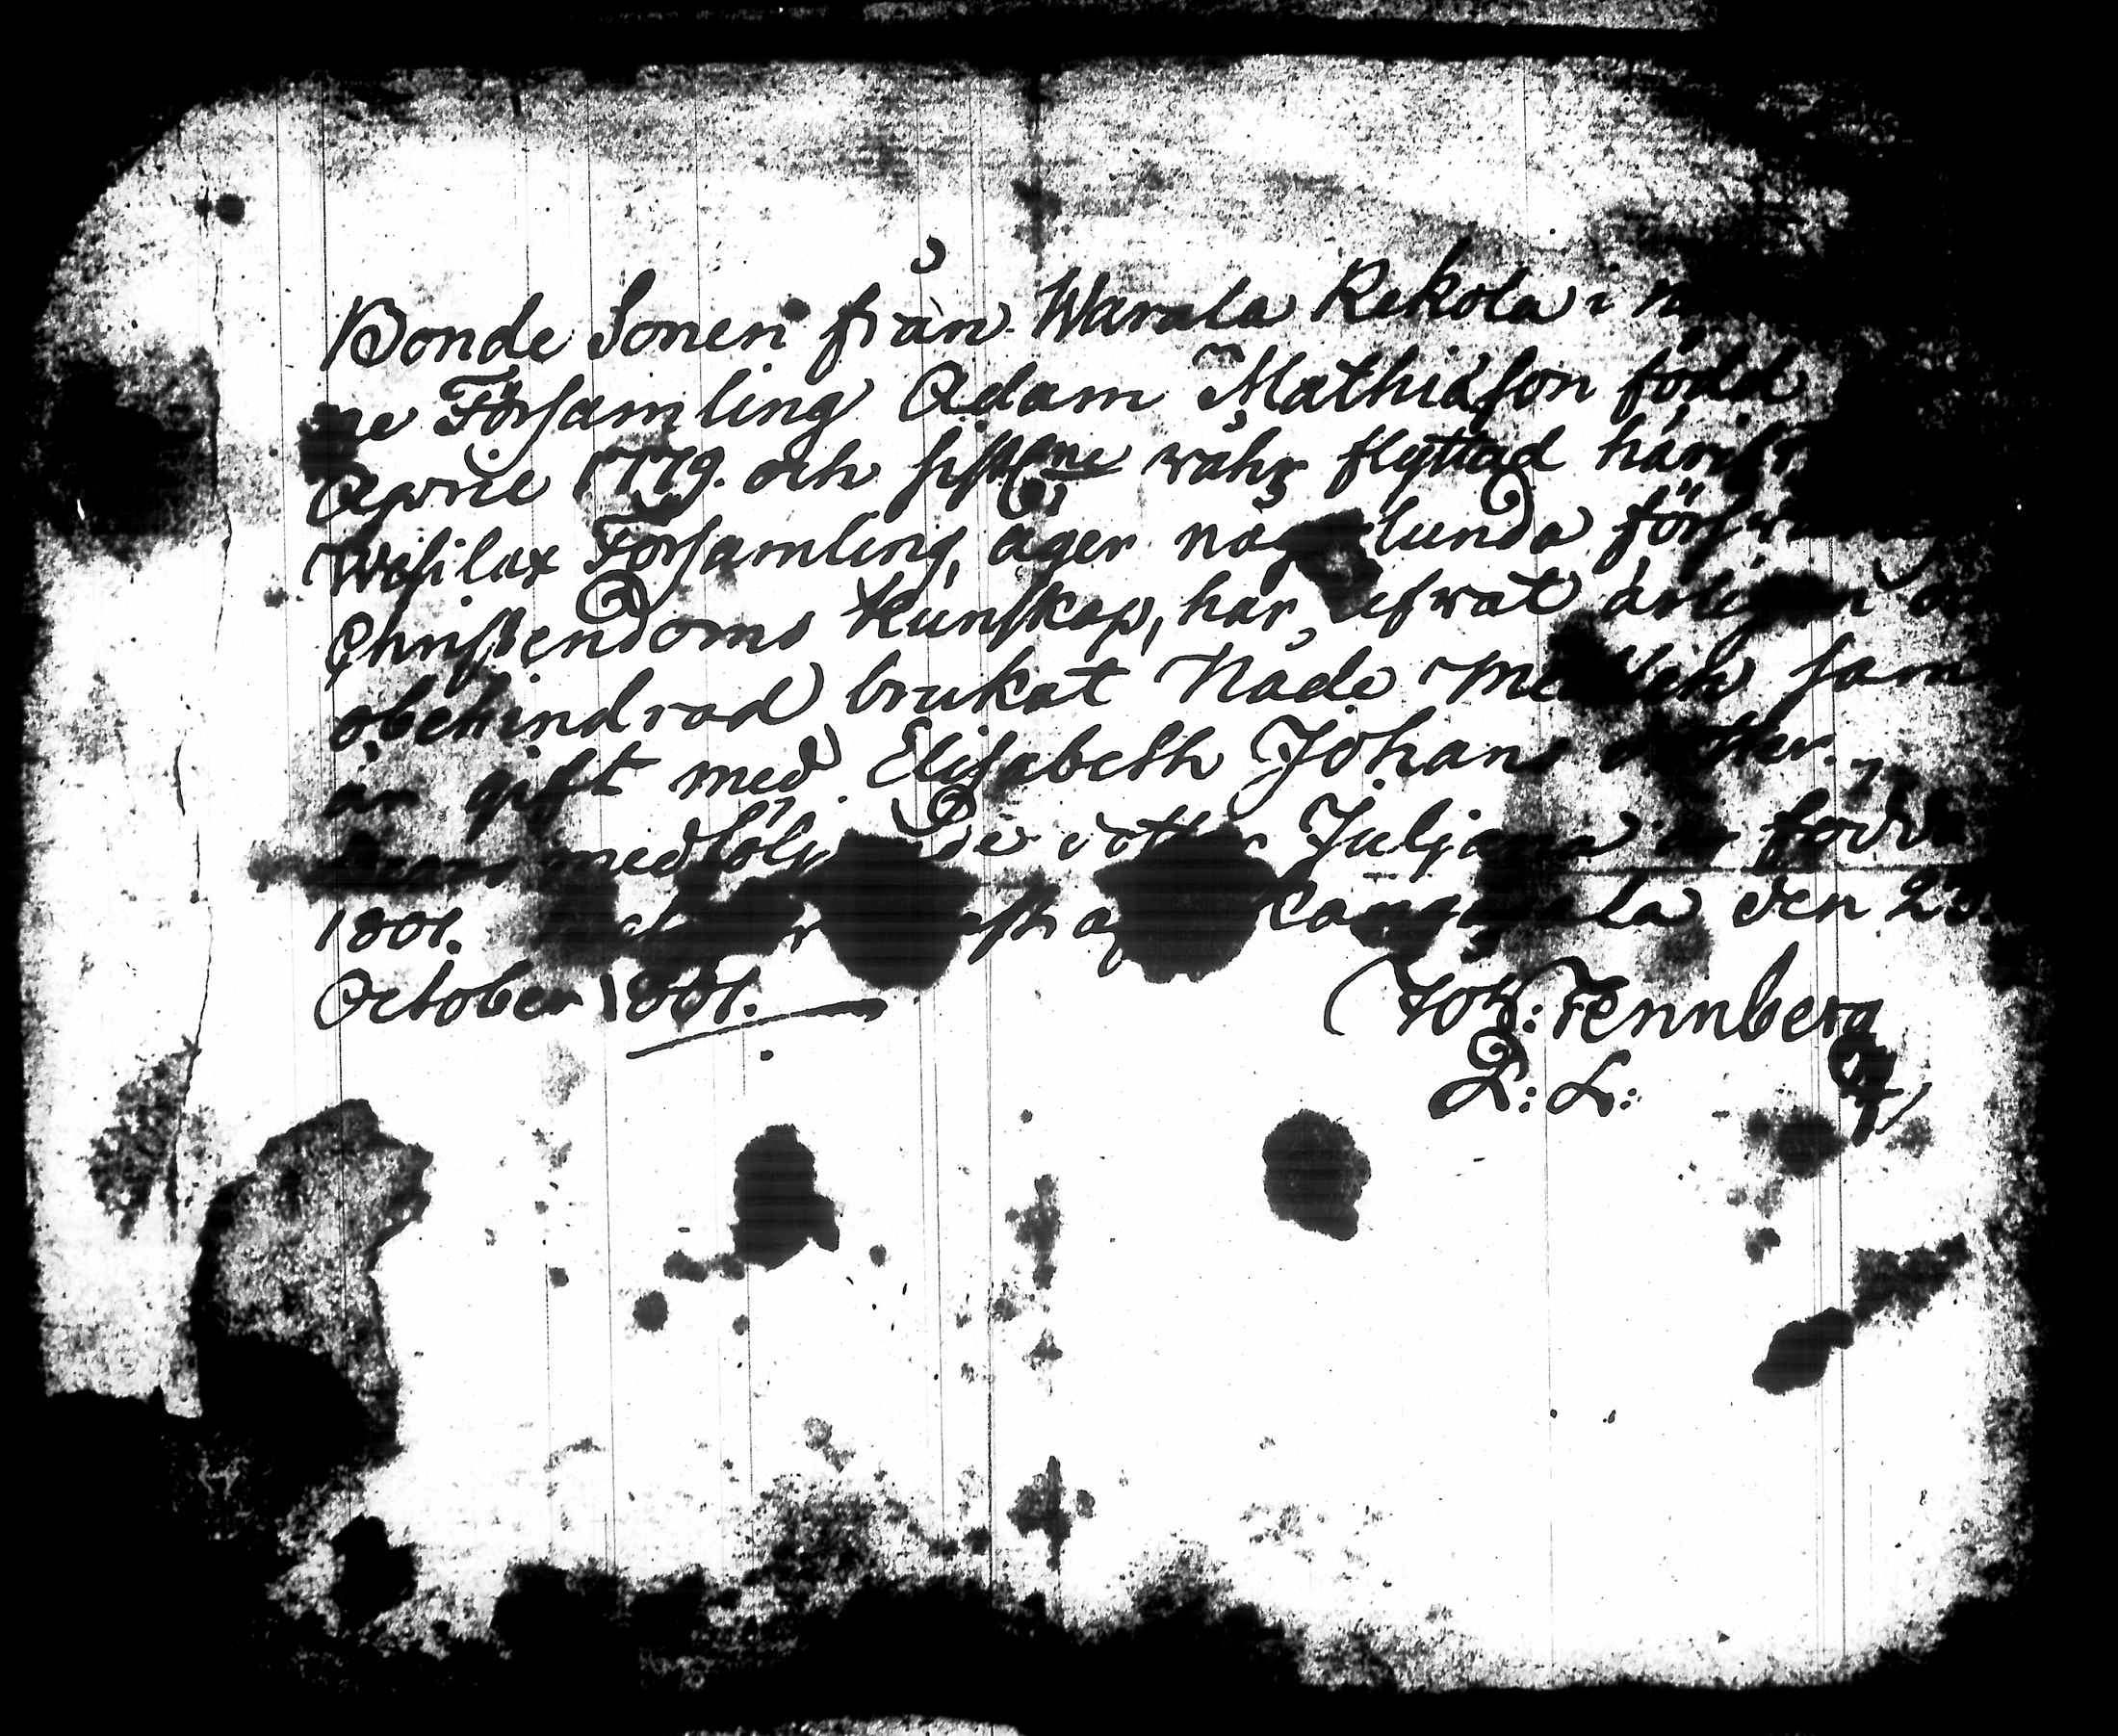 Bonde Sonen från Warala Rekola i
ne Församling Adam Mathiasson född
Aprill 1779. och sistone wåhr flyttad
Wesilax Församling, äger någorlunda
Christendoms Kunskap, har lefwat ärligen
obehindrad brukat Nåde Medlen sam
är gift med Elisabeth Johans dotter.
medföljande dotter Juljana är född
1801. af Kangasala den 23.
October 1801.
Joh: Fennberg
L: L: